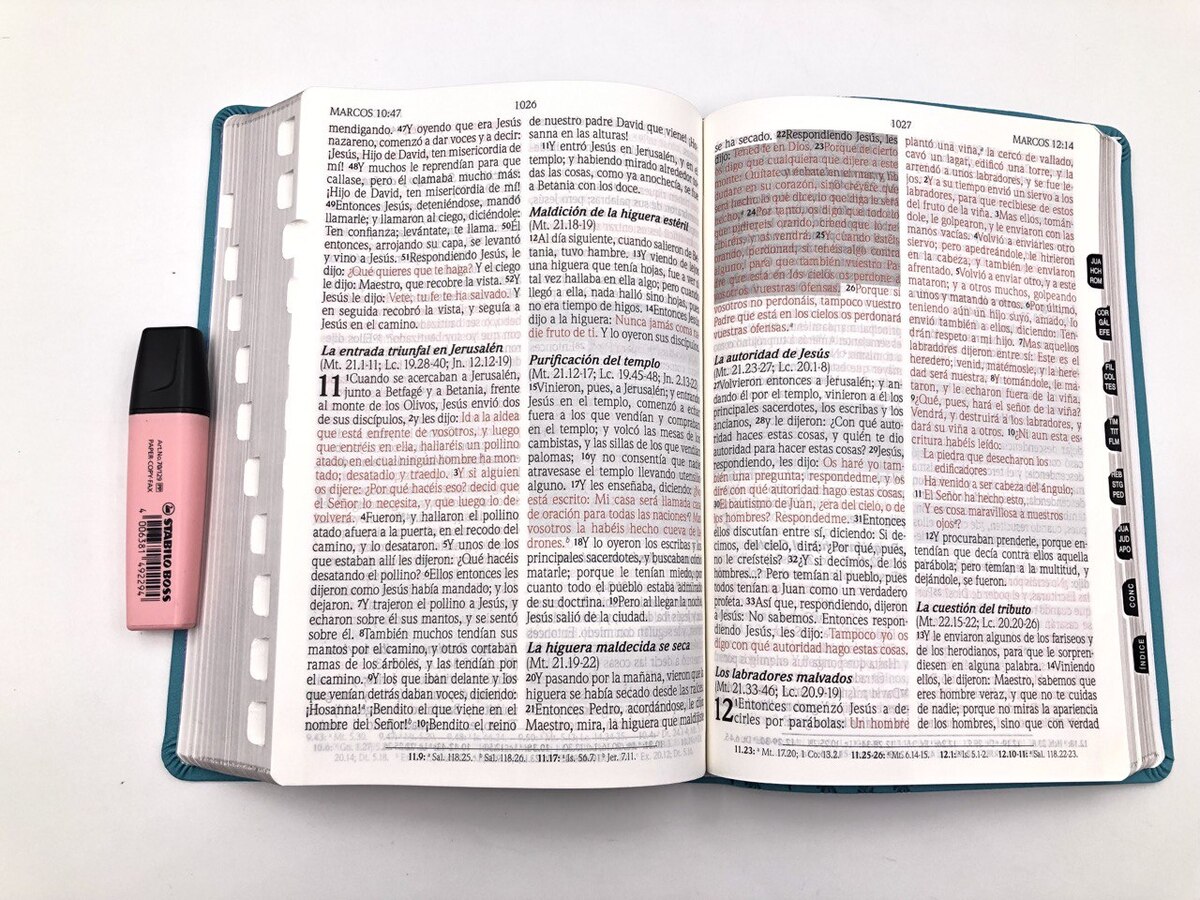 MARCOS 10:47
1026
mendigando. 47Y oyendo que era Jesús
nazareno, comenzó a dar voces y a decir:
¡Jesús, Hijo de David, ten misericordia de
mí! 48Y muchos le reprendían para que
callase, pero él clamaba mucho más:
¡Hijo de David, ten misericordia de mí!
49Entonces Jesús, deteniéndose, mandó
llamarle; y llamaron al ciego, diciéndole:
Ten confianza; levántate, te llama. 50Él
entonces, arrojando su capa, se levantó
y vino a Jesús. 51Respondiendo Jesús, le
dijo: ¿Qué quieres que te haga? Y el ciego
le dijo: Maestro, que recobre la vista. 52Y
Jesús le dijo: Vete, tu fe te ha salvado. Y
en seguida recobró la vista, y seguía a
Jesús en el camino.
La entrada triunfal en Jerusalén
(Mt. 21.1-11; Lc. 19.28-40; Jn. 12.12-19)
11 1Cuando se acercaban a Jerusalén,
junto a Betfagé y a Betania, frente
al monte de los Olivos, Jesús envió dos
de sus discípulos, 2y les dijo: Id a la aldea
que está enfrente de vosotros, y luego
que entréis en ella, hallaréis un pollino
atado, en el cual ningún hombre ha mon-
tado; desatadlo y traedlo. 3Y si alguien
os dijere: ¿Por qué hacéis eso? decid que
el Señor lo necesita, y que luego lo de-
volverá. 4Fueron, y hallaron el pollino
atado afuera a la puerta, en el recodo del
camino, y lo desataron. 5Y unos de los
que estaban allí les dijeron: ¿Qué hacéis
desatando el pollino? 6Ellos entonces les
dijeron como Jesús había mandado; y los
dejaron. 7Y trajeron el pollino a Jesús, y
echaron sobre él sus mantos, y se sentó
sobre él. 8También muchos tendían sus
mantos por el camino, y otros cortaban
ramas de los árboles, y las tendían por
el camino. 9Y los que iban delante y los
que venían detrás daban voces, diciendo:
¡Hosanna!a ¡Bendito el que viene en el
nombre del Señor!b 10¡Bendito el reino
de nuestro padre David que viene! ¡Ho
sanna en las alturas!
11Y entró Jesús en Jerusalén, y en el
templo; y habiendo mirado alrededor to
das las cosas, como ya anochecía, se fue
a Betania con los doce.
Maldición de la higuera estéril
(Mt. 21.18-19)
12Al día siguiente, cuando salieron de Be
tania, tuvo hambre. 13Y viendo de lejos
una higuera que tenía hojas, fue a ver si
tal vez hallaba en ella algo; pero cuando
llegó a ella, nada halló sino hojas, pues
no era tiempo de higos. 14Entonces Jesús
dijo a la higuera: Nunca jamás coma na
die fruto de ti. Y lo oyeron sus discípulos.
Purificación del templo
(Mt. 21.12-17; Lc. 19.45-48; Jn. 2.13-22
15Vinieron, pues, a Jerusalén; y entrando
Jesús en el templo, comenzó a echar
fuera a los que vendían y compraban
en el templo; y volcó las mesas de los
cambistas, y las sillas de los que vendían
palomas; 16y no consentía que nadie
atravesase el templo llevando utensilio
alguno. 17Y les enseñaba, diciendo: ¿No
está escrito: Mi casa será llamada casa
de oración para todas las naciones?a Mas
vosotros la habéis hecho cueva de la-
drones.b 18Y lo oyeron los escribas y los
principales sacerdotes, y buscaban cómo
matarle; porque le tenían miedo, por
cuanto todo el pueblo estaba admirado
de su doctrina. 19Pero al llegar la noche,
Jesús salió de la ciudad.
La higuera maldecida se seca
(Mt. 21.19-22)
20Y pasando por la mañana, vieron que la
higuera se había secado desde las raíces.
21Entonces Pedro, acordándose, le dijo:
Maestro, mira, la higuera que maldijiste
11.9: a Sal. 118.25. b Sal. 118.26. 11.17: a Is. 56.7. b Jer. 7.11.
1027
MARCOS 12:14
se ha secado. 22Respondiendo Jesús, les
dijo: Tened fe en Dios. 23Porque de cierto
os digo que cualquiera que dijere a este
monte: Quítate y échate en el mar, y no
dudare en su corazón, sino creyere que
será hecho lo que dice, lo que diga le será
hecho.a 24Por tanto, os digo que todo lo
que pidiereis orando, creed que lo reci-
biréis, y os vendrá. 25Y cuando estéis
orando, perdonad, si tenéis algo contra
alguno, para que también vuestro Pa-
dre que está en los cielos os perdone a
vosotros vuestras ofensas. 26Porque si
vosotros no perdonáis, tampoco vuestro
Padre que está en los cielos os perdonará
vuestras ofensas.a
La autoridad de Jesús
(Mt. 21.23-27; Lc. 20.1-8)
27Volvieron entonces a Jerusalén; y an-
dando él por el templo, vinieron a él los
principales sacerdotes, los escribas y los
ancianos, 28y le dijeron: ¿Con qué auto-
ridad haces estas cosas, y quién te dio
autoridad para hacer estas cosas? 29Jesús,
respondiendo, les dijo: Os haré yo tam-
bién una pregunta; respondedme, y os
diré con qué autoridad hago estas cosas.
30El bautismo de Juan, ¿era del cielo, o de
los hombres? Respondedme. 31Entonces
ellos discutían entre sí, diciendo: Si de-
cimos, del cielo, dirá: ¿Por qué, pues,
no le creísteis? 32¿Y si decimos, de los
hombres...? Pero temían al pueblo, pues
todos tenían a Juan como un verdadero
profeta. 33Así que, respondiendo, dijeron
a Jesús: No sabemos. Entonces respon-
diendo Jesús, les dijo: Tampoco yo os
digo con qué autoridad hago estas cosas.
Los labradores malvados
(Mt. 21.33-46; Lc. 20.9-19)
12 1Entonces comenzó Jesús a de-
cirles por parábolas: Un hombre
plantó una viña,a la cercó de vallado,
cavó un lagar, edificó una torre, y la
arrendó a unos labradores, y se fue le-
jos. 2Y a su tiempo envió un siervo a los
labradores, para que recibiese de éstos
del fruto de la viña. 3Mas ellos, tomán-
dole, le golpearon, y le enviaron con las
manos vacías. 4Volvió a enviarles otro
siervo; pero apedreándole, le hirieron
en la cabeza, y también le enviaron
afrentado. 5Volvió a enviar otro, y a este
mataron; y a otros muchos, golpeando
a unos y matando a otros. 6Por último,
teniendo aún un hijo suyo, amado, lo
envió también a ellos, diciendo: Ten-
drán respeto a mi hijo. 7Mas aquellos
labradores dijeron entre sí: Este es el
heredero; venid, matémosle, y la here-
dad será nuestra. 8Y tomándole, le ma-
taron, y le echaron fuera de la viña.
9¿Qué, pues, hará el señor de la viña?
Vendrá, y destruirá a los labradores, y
dará su viña a otros. 10¿Ni aun esta es-
critura habéis leído:
La piedra que desecharon los
edificadores
Ha venido a ser cabeza del ángulo;
11 El Señor ha hecho esto,
Y es cosa maravillosa a nuestros
ojos?a
12Y procuraban prenderle, porque en-
tendían que decía contra ellos aquella
parábola; pero temían a la multitud, y
dejándole, se fueron.
La cuestión del tributo
(Mt. 22.15-22; Lc. 20.20-26)
13Y le enviaron algunos de los fariseos y
de los herodianos, para que le sorpren-
diesen en alguna palabra. 14Viniendo
ellos, le dijeron: Maestro, sabemos que
eres hombre veraz, y que no te cuidas
de nadie; porque no miras la apariencia
de los hombres, sino que con verdad
11.23: a Mt. 17.20; 1 Co. 13.2. 11.25-26: a Mt. 6.14-15. 12.1: a Is. 5.1-2. 12.10-11: a Sal. 118.22-23.
JUA
HCH
ROM
COR
GÁL
EFE
FIL
COL
TES
TIM
TIT
FLM
HEB
STG
PED
JUA
JUD
APO
CONC
ÍNDICE
Art.No.70/129
PAPER·COPY·FAX
STABILO BOSS
4 006381 492294